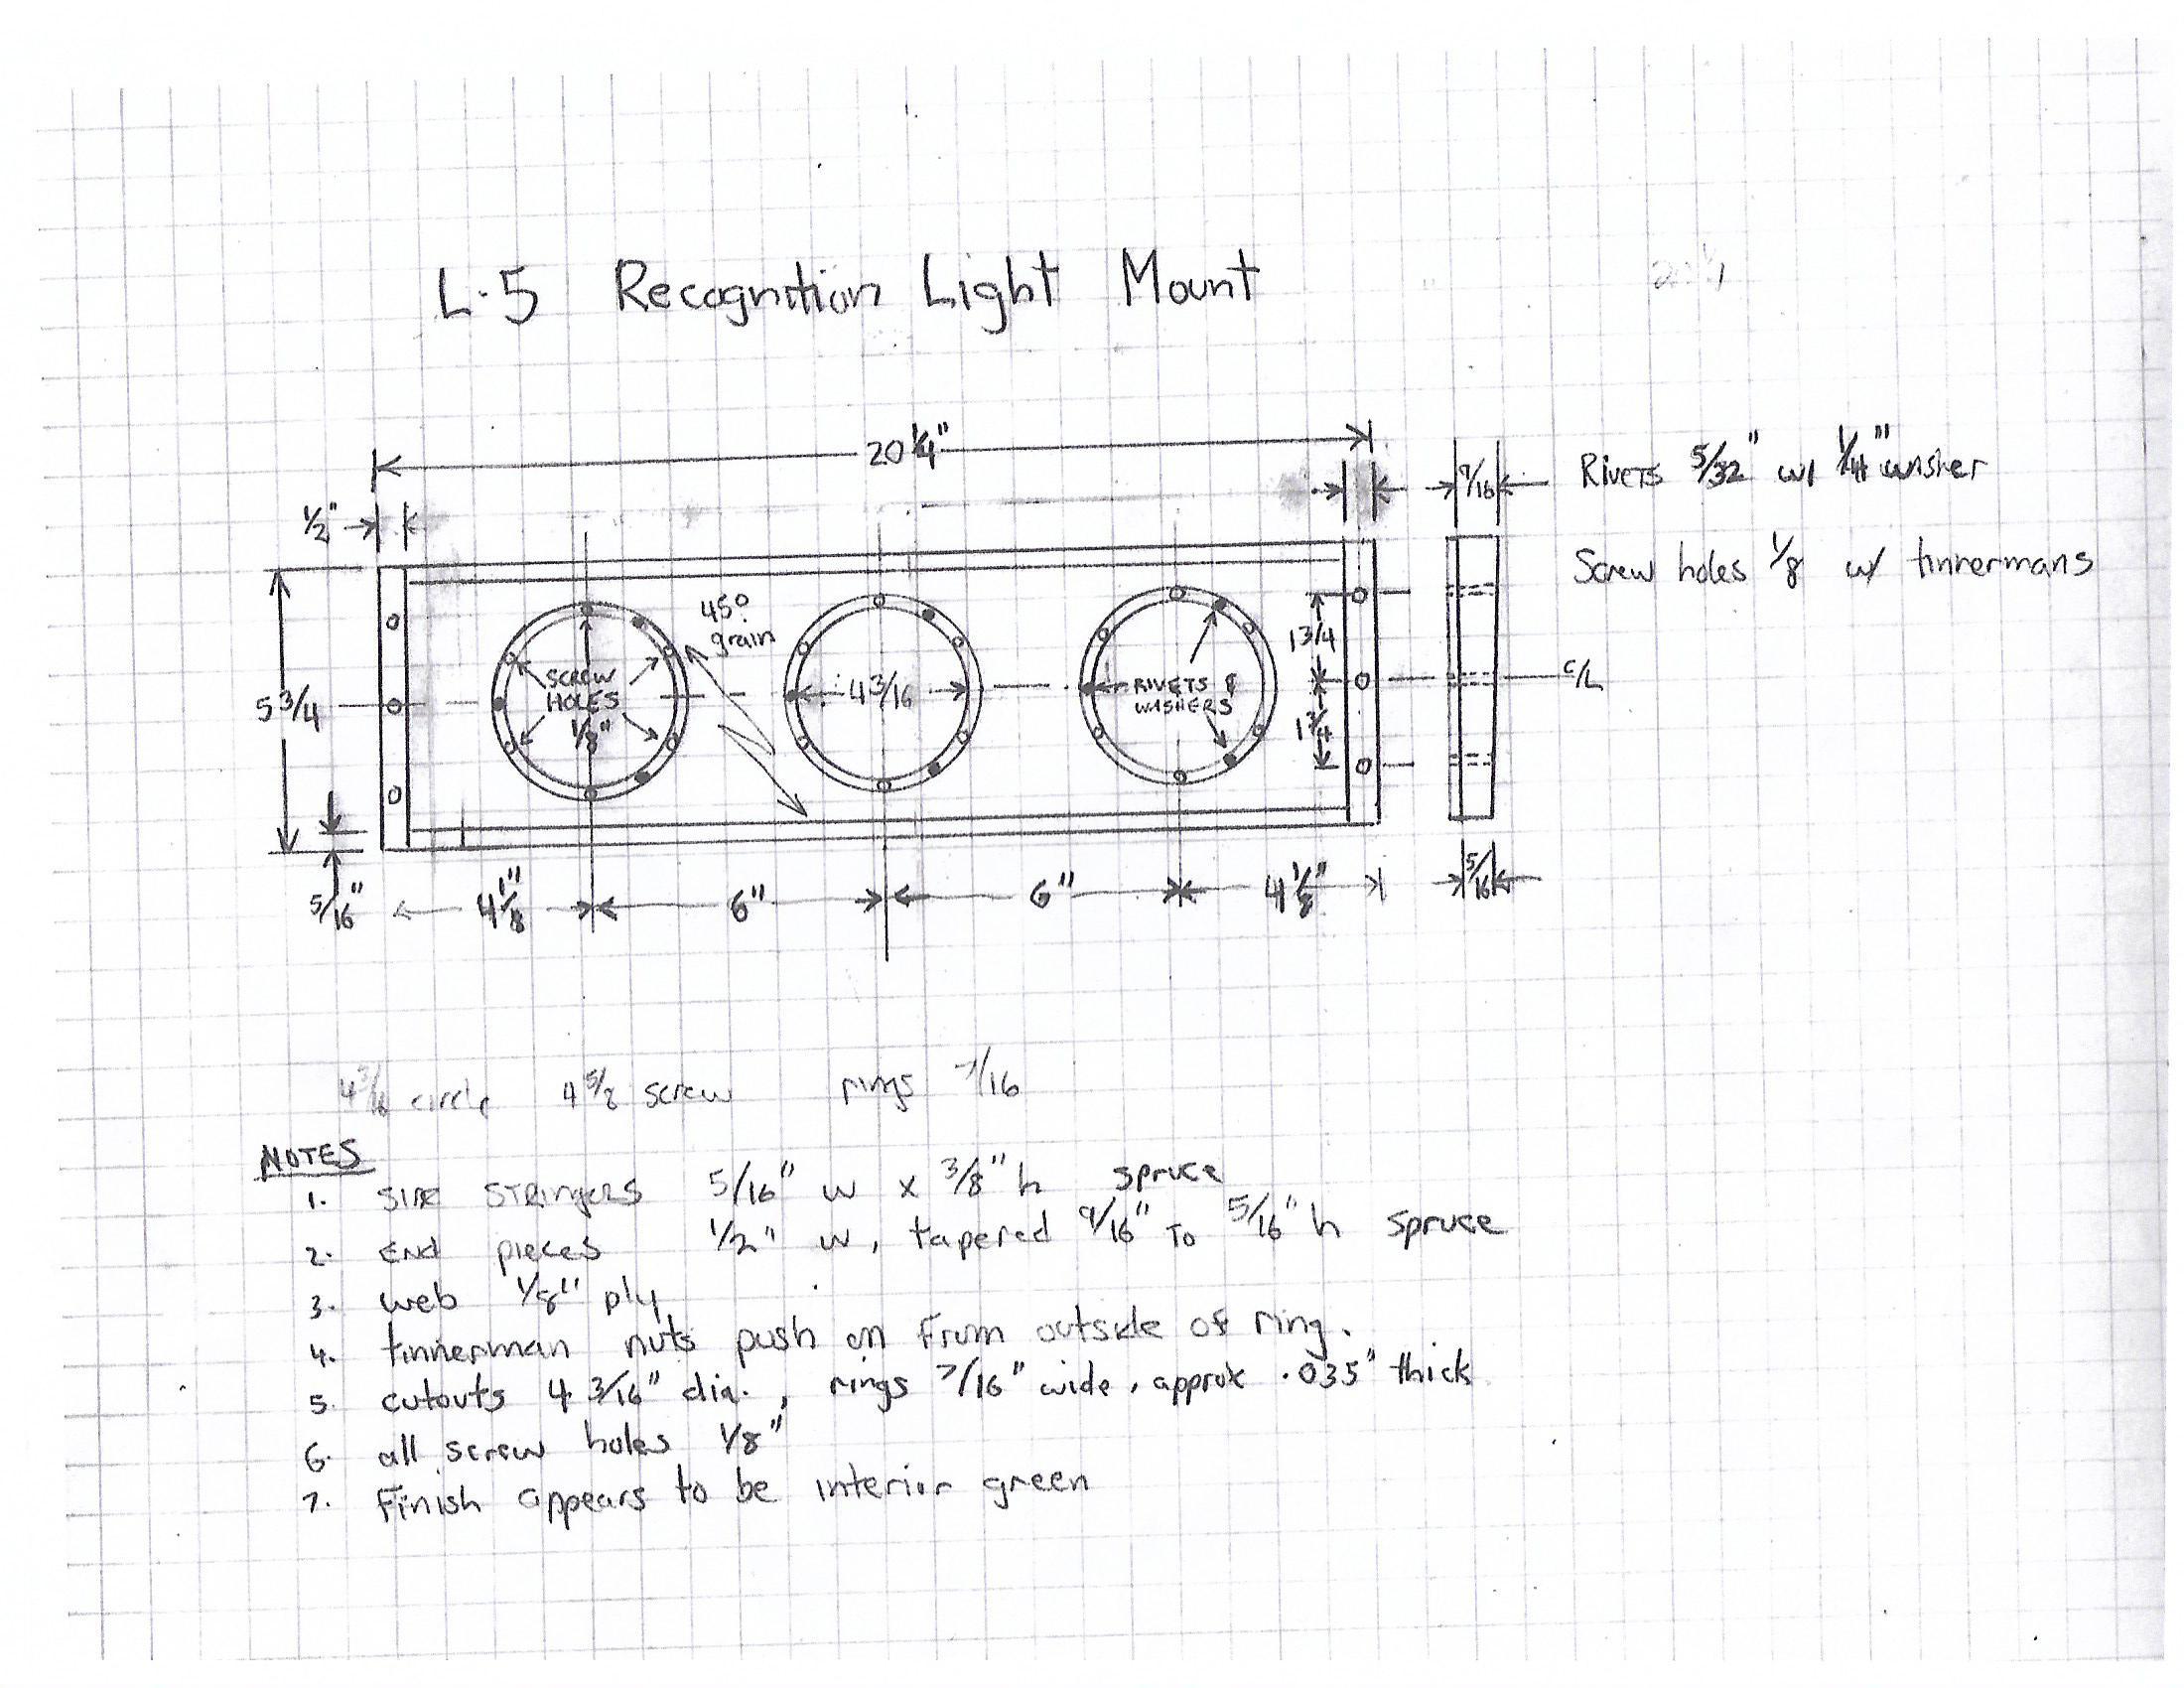 L-5 Recognition Light Mount
20 1/4"
9/16
Rivets 5/32" w/ 1/4" washer
1/2"
Screw holes 1/8 w/ tinnermans
45° grain
1 3/4
C/L
SCREW HOLES 1/8"
4 3/16
RIVETS & WASHERS
5 3/4
1 3/4
5/16"
4 1/8"
6"
6"
4 1/8"
5/16
4 3/16 circle 4 5/8 screw rings 7/16
NOTES
1. side stringers 5/16" w x 3/8" h spruce
2. end pieces 1/2" w, tapered 9/16" to 5/16" h spruce
3. web 1/8" ply
4. tinnerman nuts push on from outside of ring.
5. cutouts 4 3/16" dia., rings 7/16" wide, approx .035" thick
6. all screw holes 1/8"
7. Finish appears to be interior green